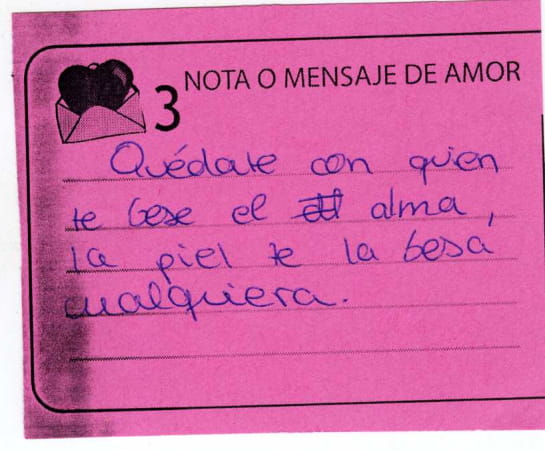 3 NOTA O MENSAJE DE AMOR
Quédate con quien
te bese el alma,
la piel te la besa
cualquiera.